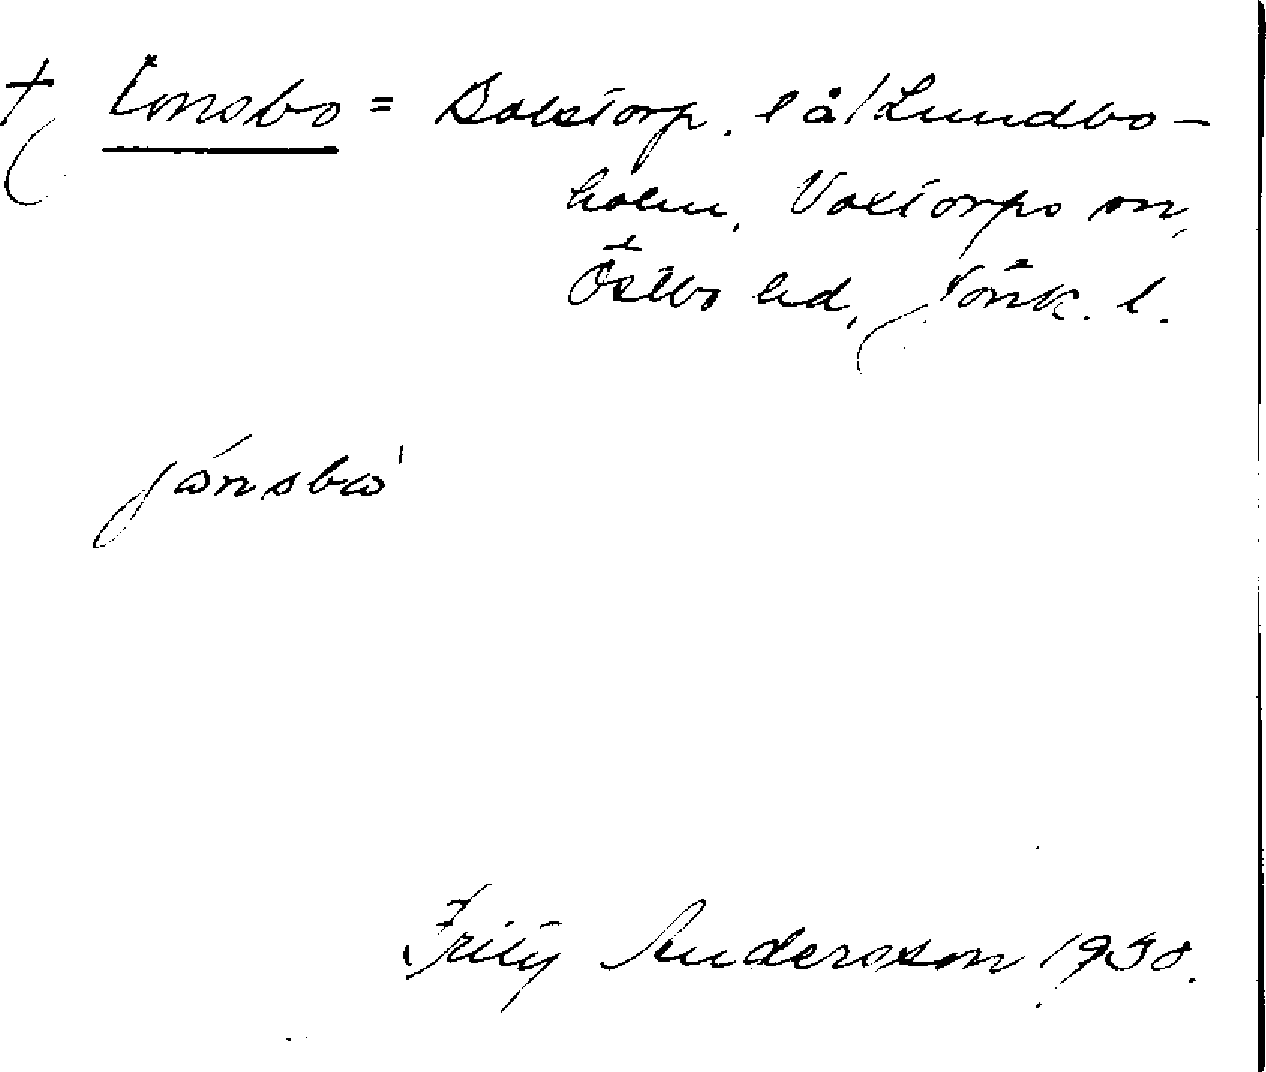 † Jonsbo = Bolstorp. l å/Lundbo-
holm, Voxtorps sn,
Östbo hd, Jönk. l.
Fritz Andersson 1930.